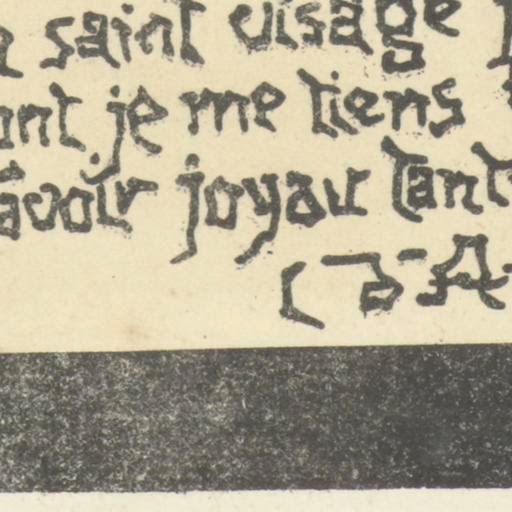 saint visage
je me tiens
avoir joyau tant